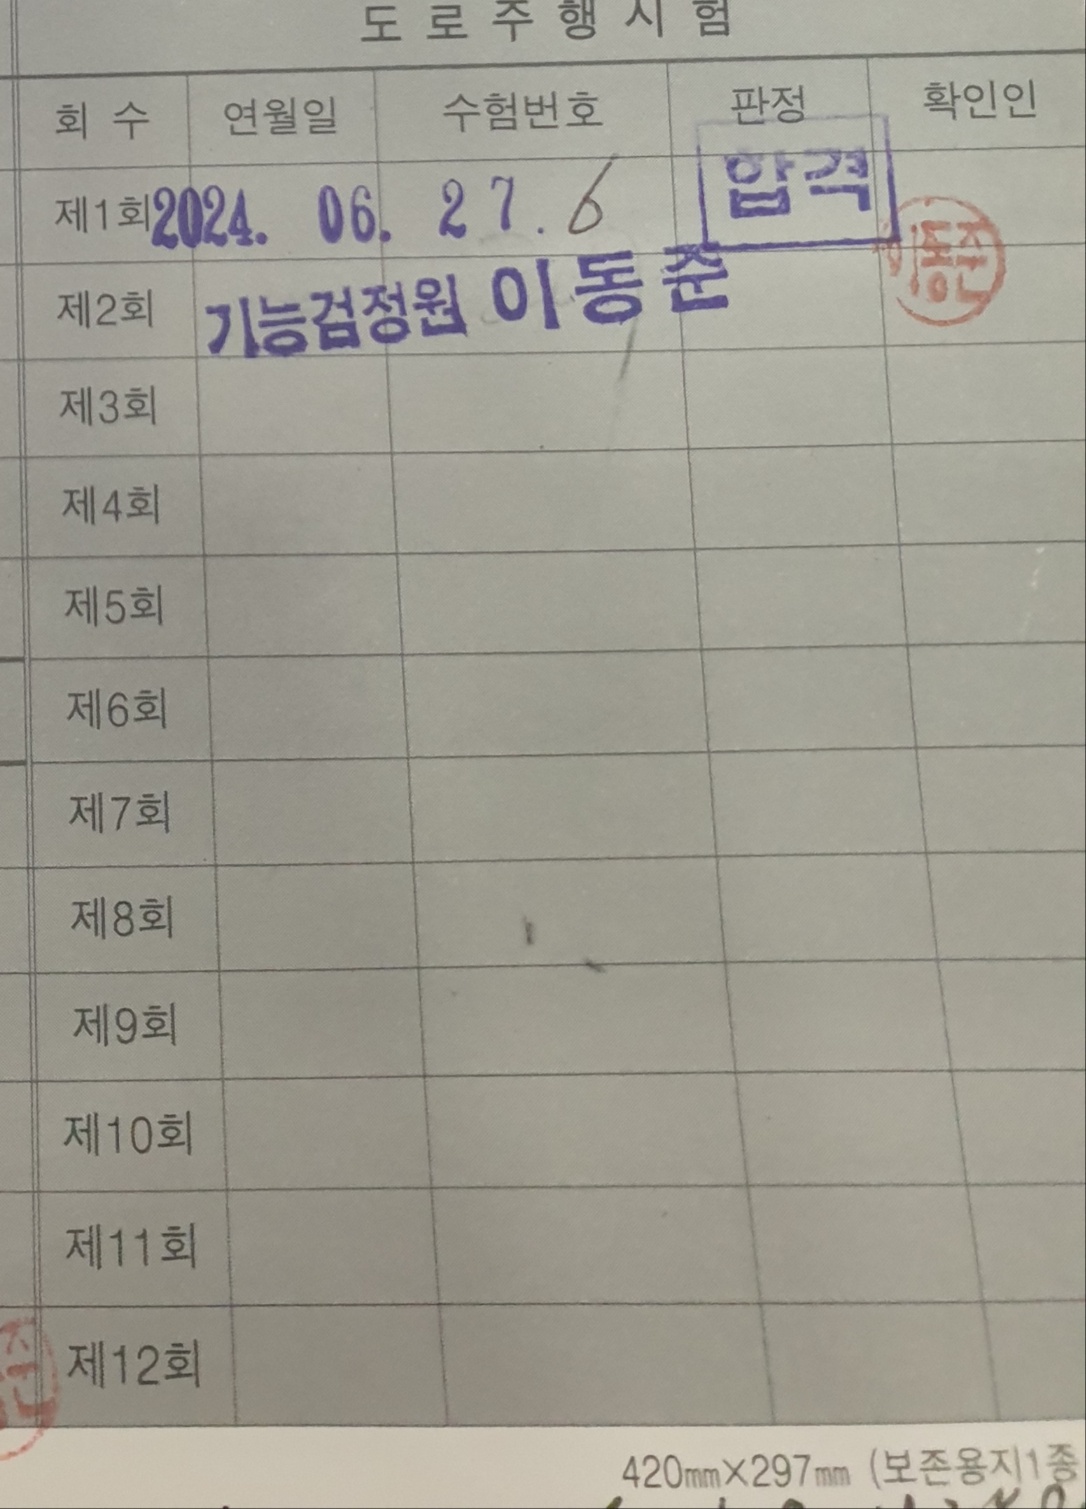 도로주행시험
회 수 연월일 수험번호 판정 확인인
제1회 2024. 06. 27. 6 합격
이동준
제2회 기능검정원 이동준
제3회
제4회
제5회
제6회
제7회
제8회
제9회
제10회
제11회
제12회
준
420mm×297mm (보존용지1종